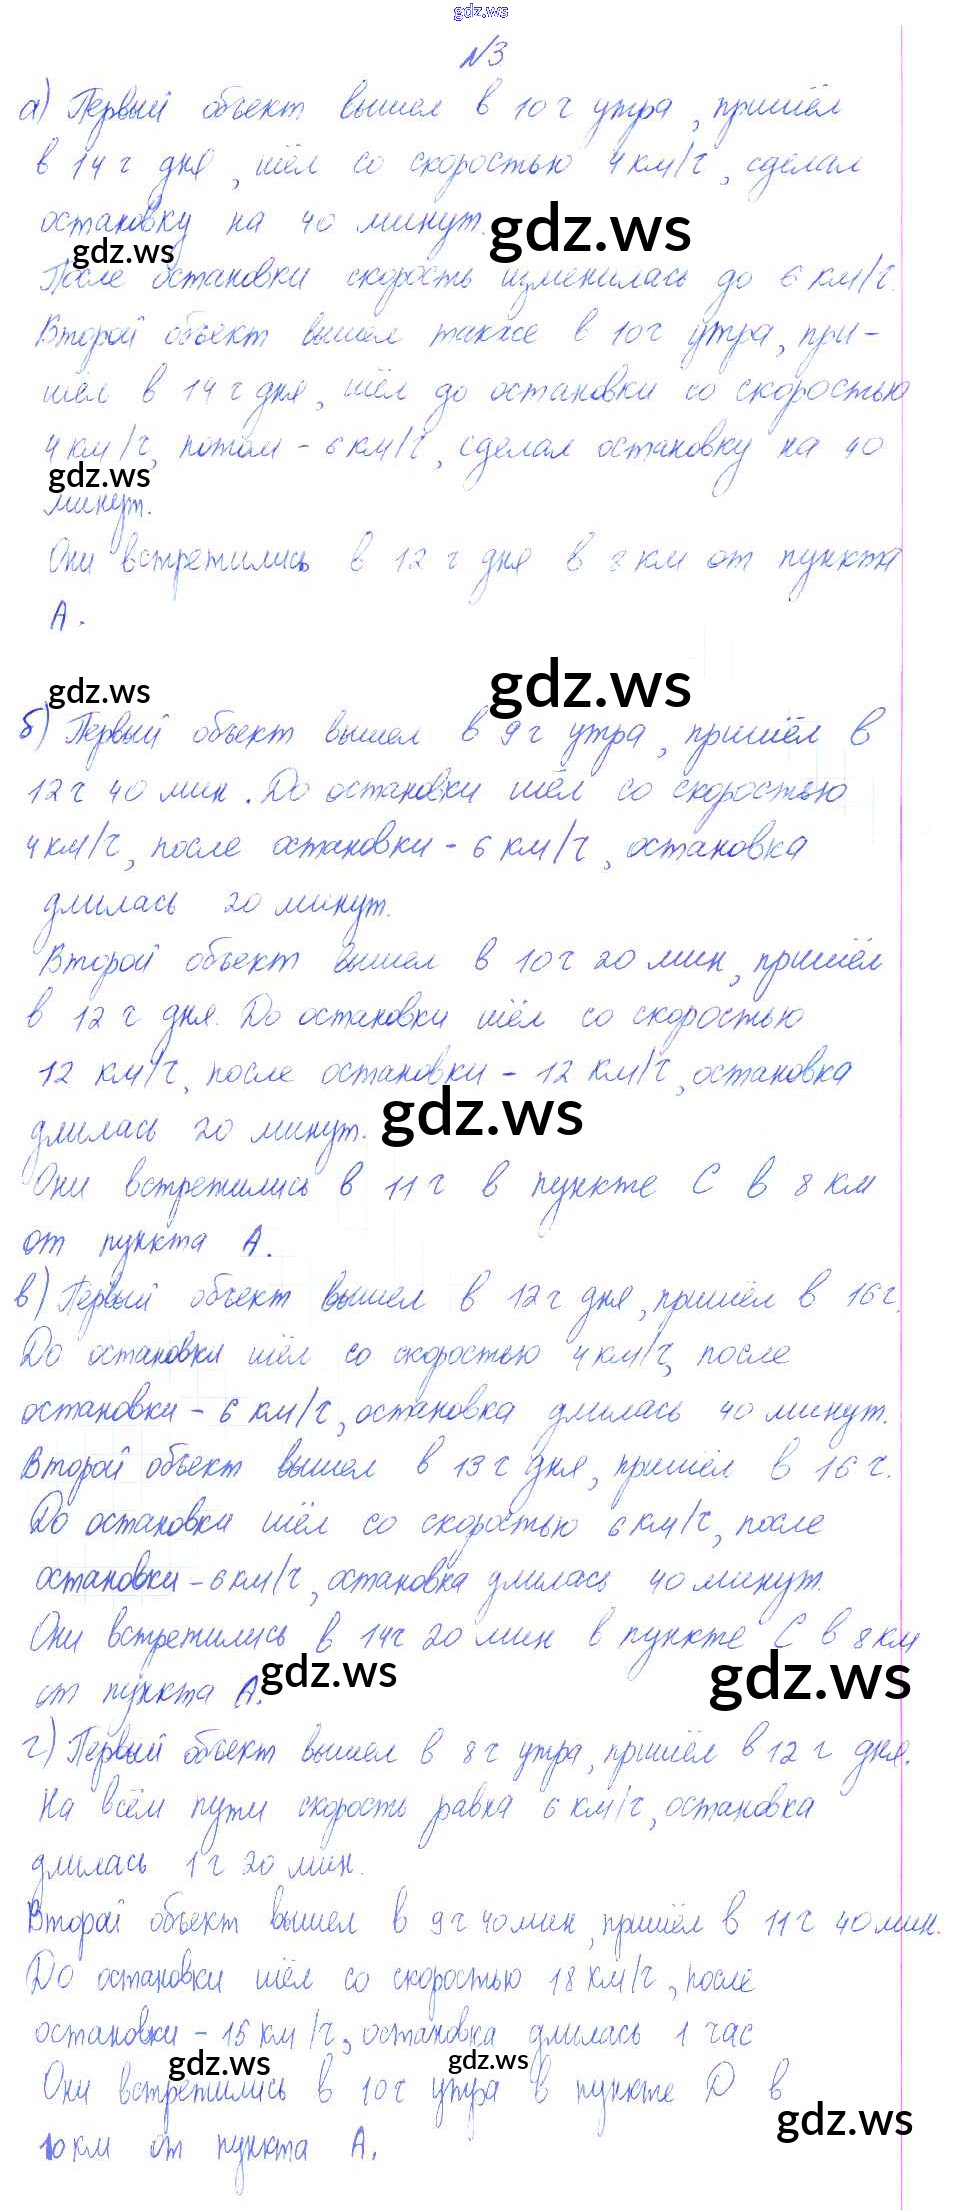 gdz.ws
№3
а) Первый объект вышел в 10 ч утра, пришёл
в 14 ч дня, шёл со скоростью 4 км/ч, сделал
остановку на 40 минут.
gdz.ws
gdz.ws
После остановки скорость изменилась до 6 км/ч.
Второй объект вышел также в 10 ч утра, при-
шёл в 14 ч дня, шёл до остановки со скоростью
4 км/ч, потом - 6 км/ч, сделал остановку на 40
gdz.ws
минут.
Они встретились в 12 ч дня в 8 км от пункта
А.
gdz.ws
gdz.ws
б) Первый объект вышел в 9 ч утра, пришёл в
12 ч 40 мин. До остановки шёл со скоростью
4 км/ч, после остановки - 6 км/ч, остановка
длилась 20 минут.
Второй объект вышел в 10 ч 20 мин, пришёл
в 12 ч дня. До остановки шёл со скоростью
12 км/ч, после остановки - 12 км/ч, остановка
gdz.ws
длилась 20 минут.
Они встретились в 11 ч в пункте С в 8 км
от пункта А.
в) Первый объект вышел в 12 ч дня, пришёл в 16 ч.
До остановки шёл со скоростью 4 км/ч, после
остановки - 6 км/ч, остановка длилась 40 минут.
Второй объект вышел в 13 ч дня, пришёл в 16 ч.
До остановки шёл со скоростью 6 км/ч, после
остановки - 6 км/ч, остановка длилась 40 минут.
Они встретились в 14 ч 20 мин в пункте С в 8 км
gdz.ws
gdz.ws
от пункта А.
г) Первый объект вышел в 8 ч утра, пришёл в 12 ч дня.
На всём пути скорость равна 6 км/ч, остановка
длилась 1 ч 20 мин.
Второй объект вышел в 9 ч 40 мин, пришёл в 11 ч 40 мин.
До остановки шёл со скоростью 18 км/ч, после
остановки - 15 км/ч, остановка длилась 1 час
gdz.ws
gdz.ws
Они встретились в 10 ч утра в пункте D в
gdz.ws
10 км от пункта А.